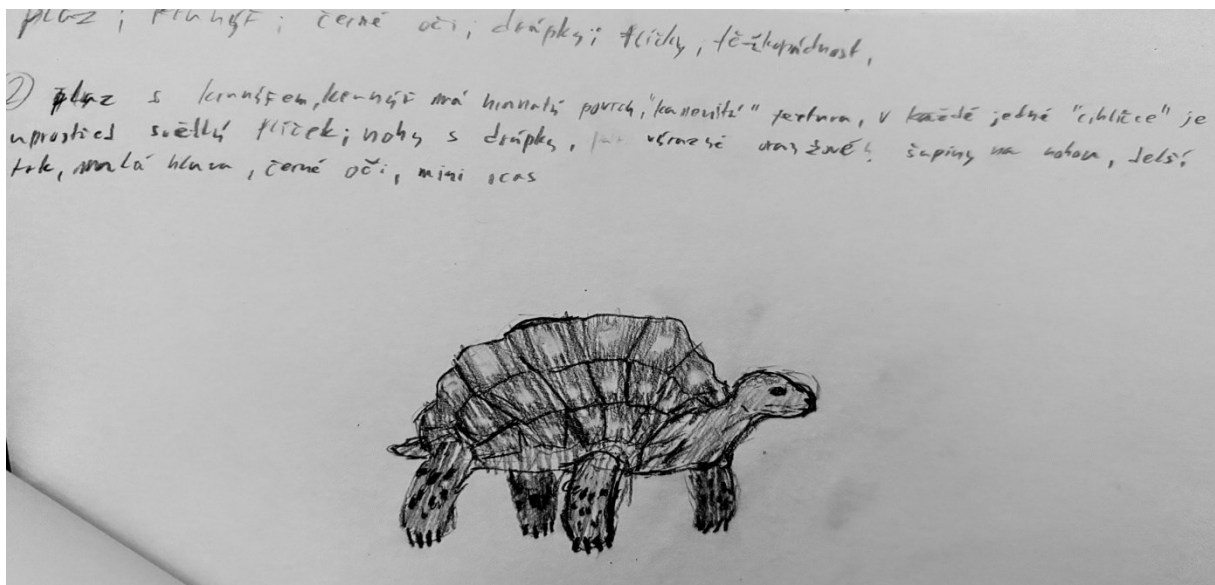 plaz ; krunýř ; černé oči ; drápky ; flíčky , těžkopádnost ,
② plaz s krunýřem, krunýř má hranatý povrch, "kamenitá" textura, v každé jedné "cihličce" je
uprostřed světlý flíček ; nohy s drápky, výrazné oranžové šupiny na nohou, delší
krk, malá hlava, černé oči, mini ocas